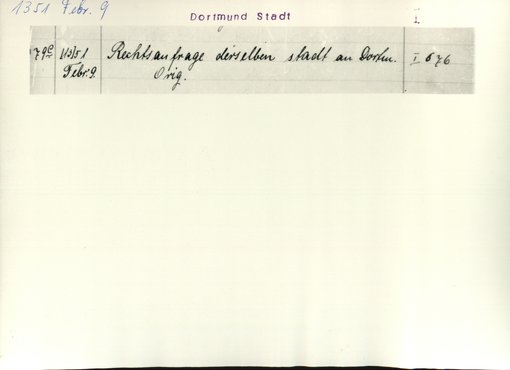 1351 Febr. 9
Dortmund Stadt
I.
79c 1351 Rechtsanfrage derselben stadt an Dortm. I 676
Febr. 9. Orig.